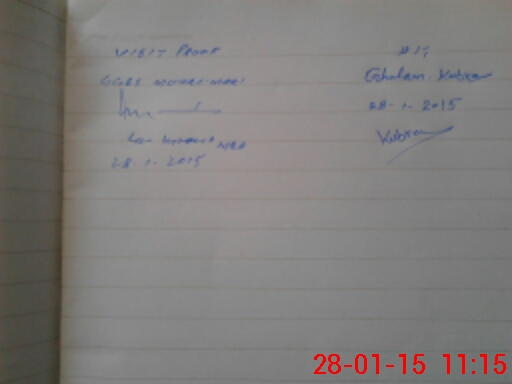 VISIT PROOF
GGBS
28-1-2015
H.T;
Ghulam Kubra
28-1-2015
Kubra
28-01-15 11:15